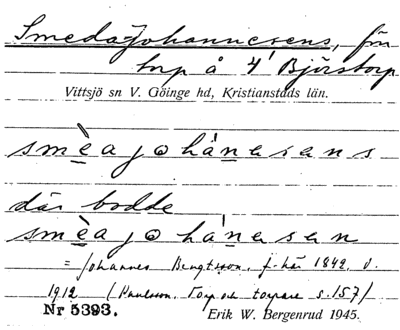 SmedaJohannesens, fört
torp å 4' Björstorp
Vittsjö sn V. Göinge hd, Kristianstads län.
smèajohánesens
där bodde
smèajohánesen
= Johannes Bengtsson, f. här 1842, d.
1912 (Paulsson, Torp och torpare s. 157)
Nr 5393. Erik W. Bergenrud 1945.